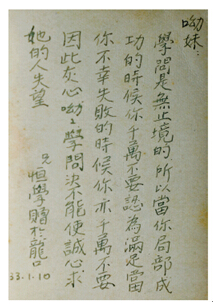 呦妹：
學問是無止境的所以當你局部成
功的時候你千萬不要認為滿足當
你不幸失敗的時候你亦千萬不要
因此灰心呦呦學問決不能使誠心求
她的人失望
兄恒學贈於龍口
33.1.10